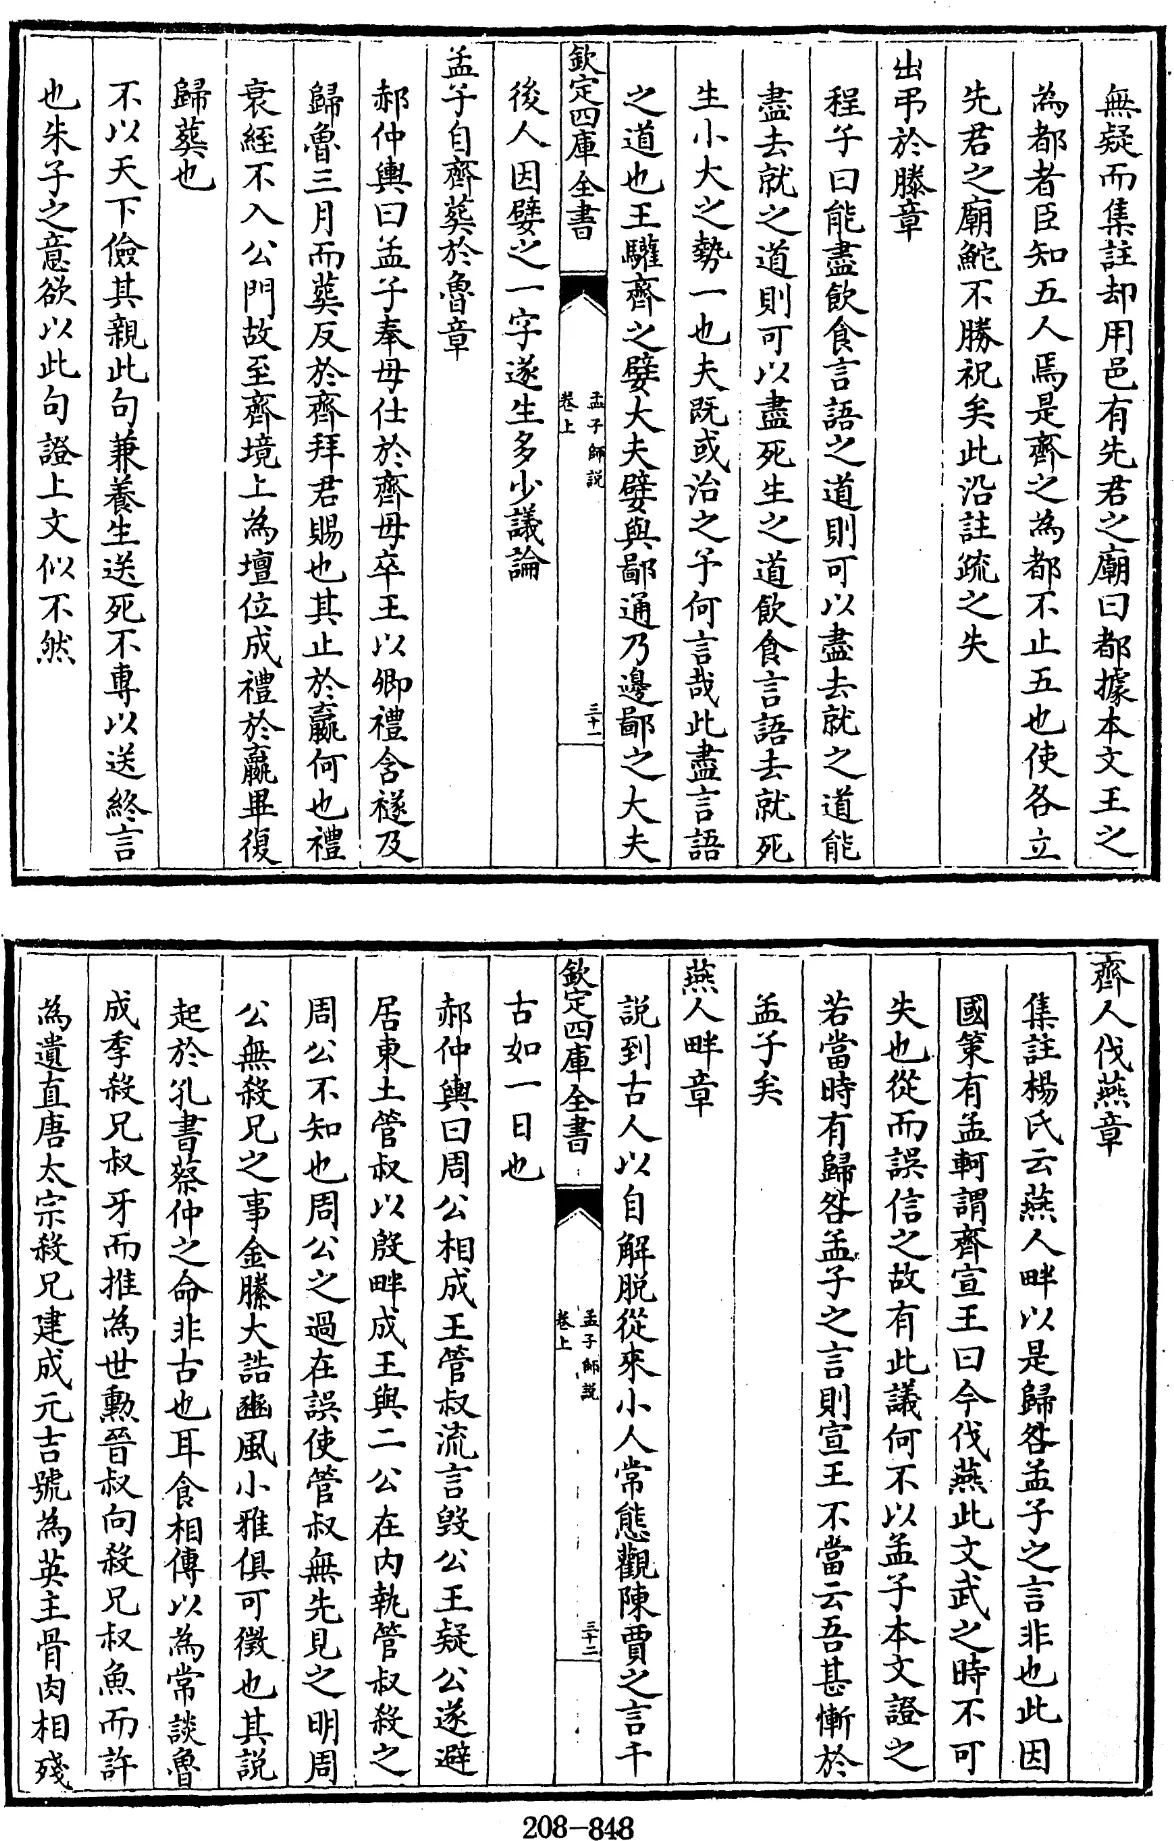 無疑而集註却用邑有先君之廟曰都據本文王之
為都者臣知五人焉是齊之為都不止五也使各立
先君之廟鮀不勝祝矣此沿註疏之失
出弔於滕章
程子曰能盡飲食言語之道則可以盡去就之道能
盡去就之道則可以盡死生之道飲食言語去就死
生小大之勢一也夫既或治之予何言哉此盡言語
之道也王驩齊之嬖大夫嬖與鄙通乃邊鄙之大夫
欽定四庫全書
孟子師說
卷上
三十一
後人因嬖之一字遂生多少議論
孟子自齊葬於魯章
郝仲輿曰孟子奉母仕於齊母卒王以卿禮含襚及
歸魯三月而葬反於齊拜君賜也其止於嬴何也禮
衰絰不入公門故至齊境上為壇位成禮於嬴畢復
歸葬也
不以天下儉其親此句兼養生送死不專以送終言
也朱子之意欲以此句證上文似不然
齊人伐燕章
集註楊氏云燕人畔以是歸咎孟子之言非也此因
國策有孟軻謂齊宣王曰今伐燕此文武之時不可
失也從而誤信之故有此議何不以孟子本文證之
若當時有歸咎孟子之言則宣王不當云吾甚慚於
孟子矣
燕人畔章
說到古人以自解脫從來小人常態觀陳賈之言千
欽定四庫全書
孟子師說
卷上
三十二
古如一日也
郝仲輿曰周公相成王管叔流言毀公王疑公遂避
居東土管叔以殷畔成王與二公在内執管叔殺之
周公不知也周公之過在誤使管叔無先見之明周
公無殺兄之事金縢大誥豳風小雅俱可徵也其說
起於孔書蔡仲之命非古也耳食相傳以為常談魯
成季殺兄叔牙而推為世勳晉叔向殺兄叔魚而許
為遺直唐太宗殺兄建成元吉號為英主骨肉相殘
208-848